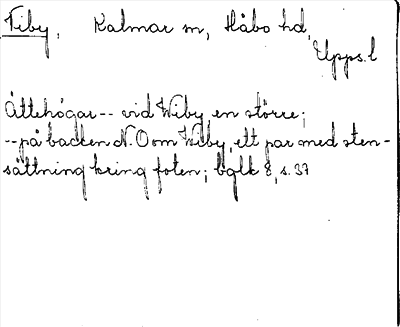 Viby, Kalmar sn, Håbo hd,
Upps. l
Ättehögar -- vid Wiby, en större;
-- på backen N.O om Wiby, ett par med sten-
sättning kring foten; bglk 8, s. 37